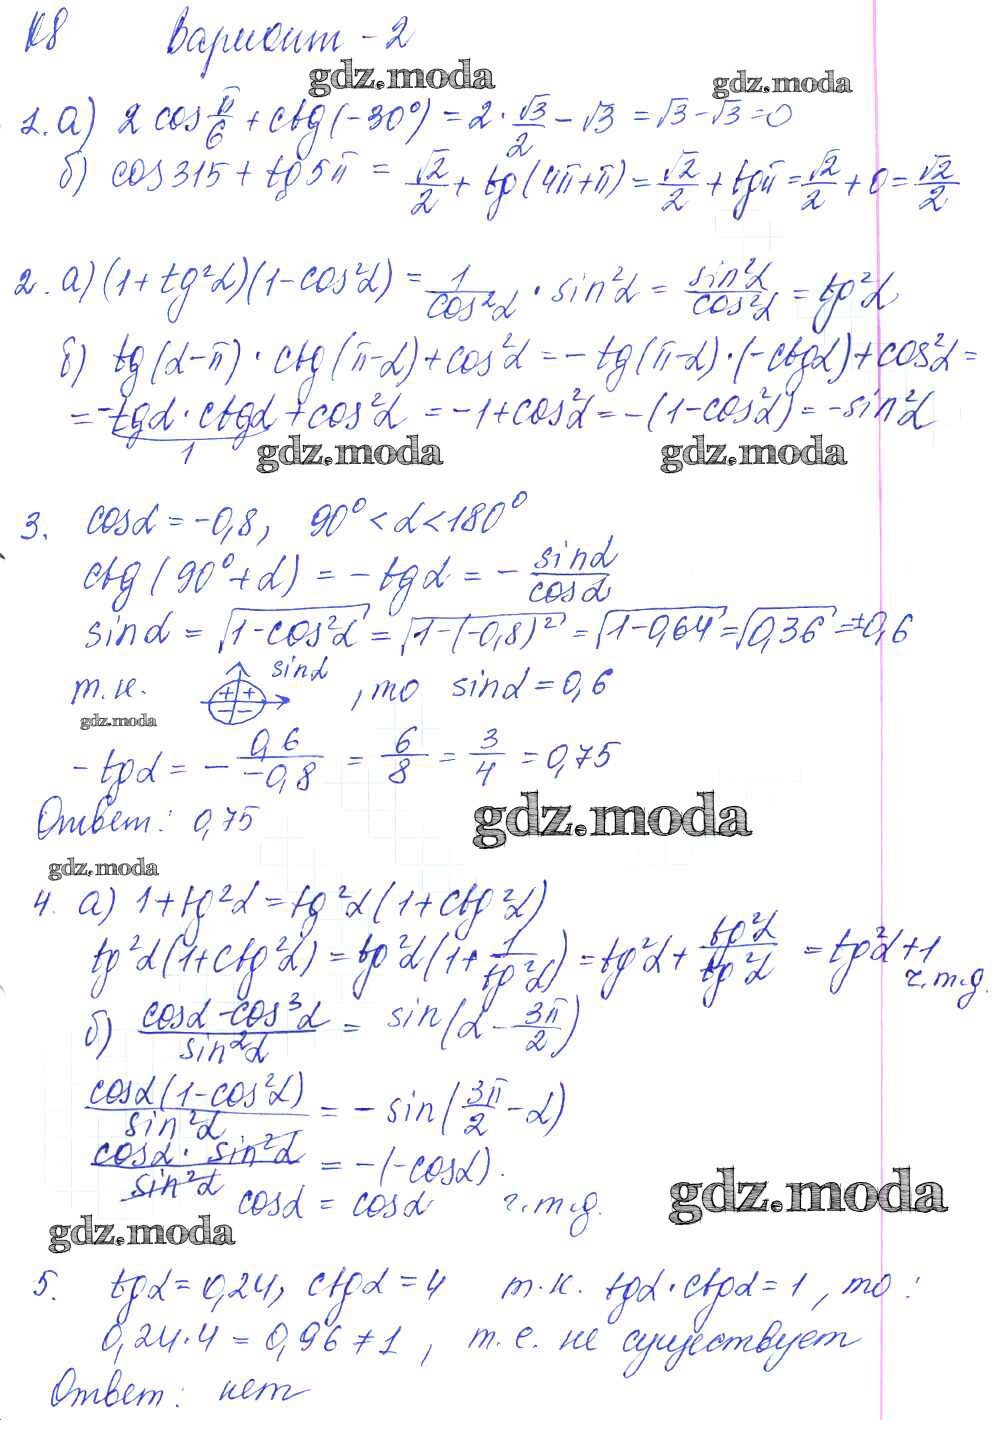 К8 Вариант - 2
gdz.moda gdz.moda
1. а) 2 cos π/6 + ctg(-30°) = 2 · √3/2 - √3 = √3 - √3 = 0
б) cos 315 + tg 5π = √2/2 + tg(4π+π) = √2/2 + tg π = √2/2 + 0 = √2/2
2. а) (1 + tg²α)(1 - cos²α) = 1/cos²α · sin²α = sin²α/cos²α = tg²α
б) tg(α-π) · ctg(π-α) + cos²α = - tg(π-α) · (-ctgα) + cos²α =
= - tgα · ctgα + cos²α = -1 + cos²α = -(1 - cos²α) = -sin²α
1
gdz.moda gdz.moda
3. cosα = -0,8, 90° < α < 180°
ctg(90° + α) = - tgα = - sinα/cosα
sinα = √(1-cos²α) = √(1-(-0,8)²) = √(1-0,64) = √0,36 = ±0,6
т.к. + + - - sinα , то sinα = 0,6
gdz.moda
- tgα = - 0,6/-0,8 = 6/8 = 3/4 = 0,75
Ответ: 0,75
gdz.moda
gdz.moda
4. а) 1 + tg²α = tg²α(1 + ctg²α)
tg²α(1 + ctg²α) = tg²α(1 + 1/tg²α) = tg²α + tg²α/tg²α = tg²α + 1
ч.т.д.
б) cosα - cos³α/sin²α = sin(α - 3π/2)
cosα(1 - cos²α)/sin²α = - sin(3π/2 - α)
cosα · sin²α/sin²α = -(-cosα).
cosα = cosα ч.т.д.
gdz.moda
gdz.moda
5. tgα = 0,24, ctgα = 4 т.к. tgα · ctgα = 1, то :
0,24 · 4 = 0,96 ≠ 1, т.е. не существует
Ответ: нет